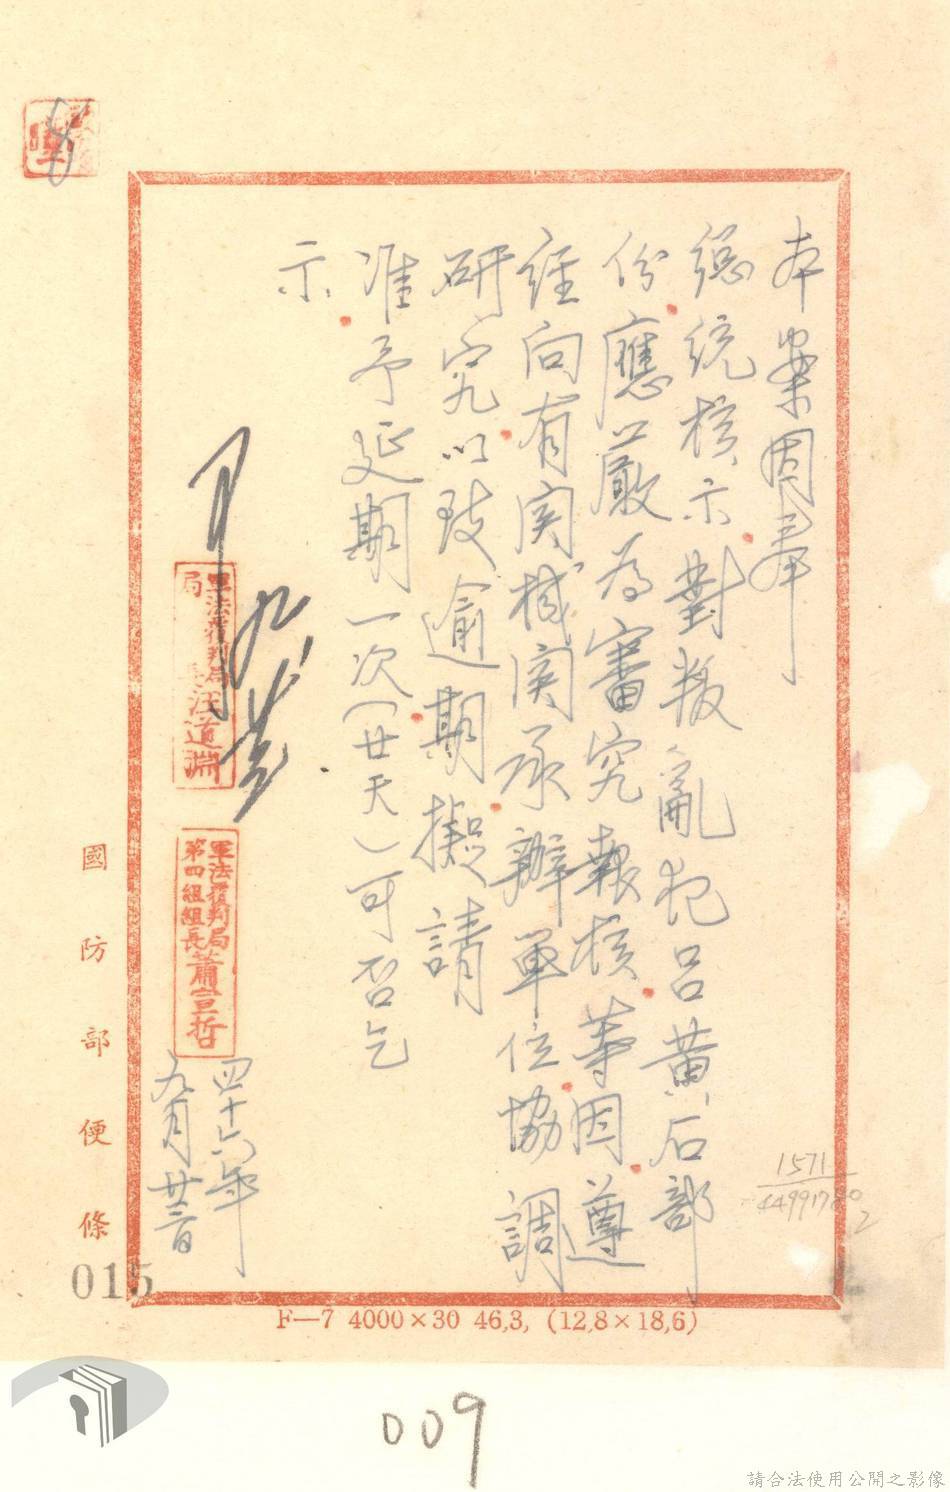 本案因奉
總統核示對叛亂犯呂黃石部
份應嚴為審究報核等因遵
經向有関機関承辦單位協調
研究以致逾期擬請
准予延期一次(廿天)可否乞
示
軍法覆判局
局長汪道淵
軍法覆判局
第四組組長蕭宣哲
四十六年
九月廿三日
國防部便條
015
1571
44991780
2
F—7 4000×30 46,3, (12,8×18,6)
009
請合法使用公開之影像